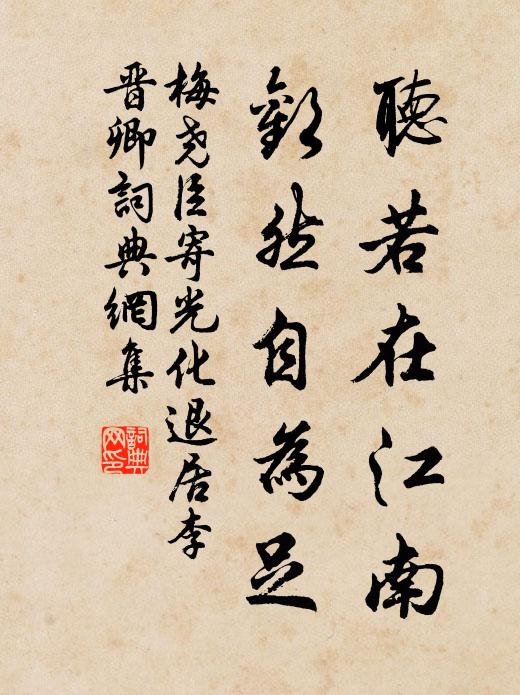 聽若在江南
歡然自為足
梅尧臣寄光化退居李
晋卿詞典網集
詞典网印